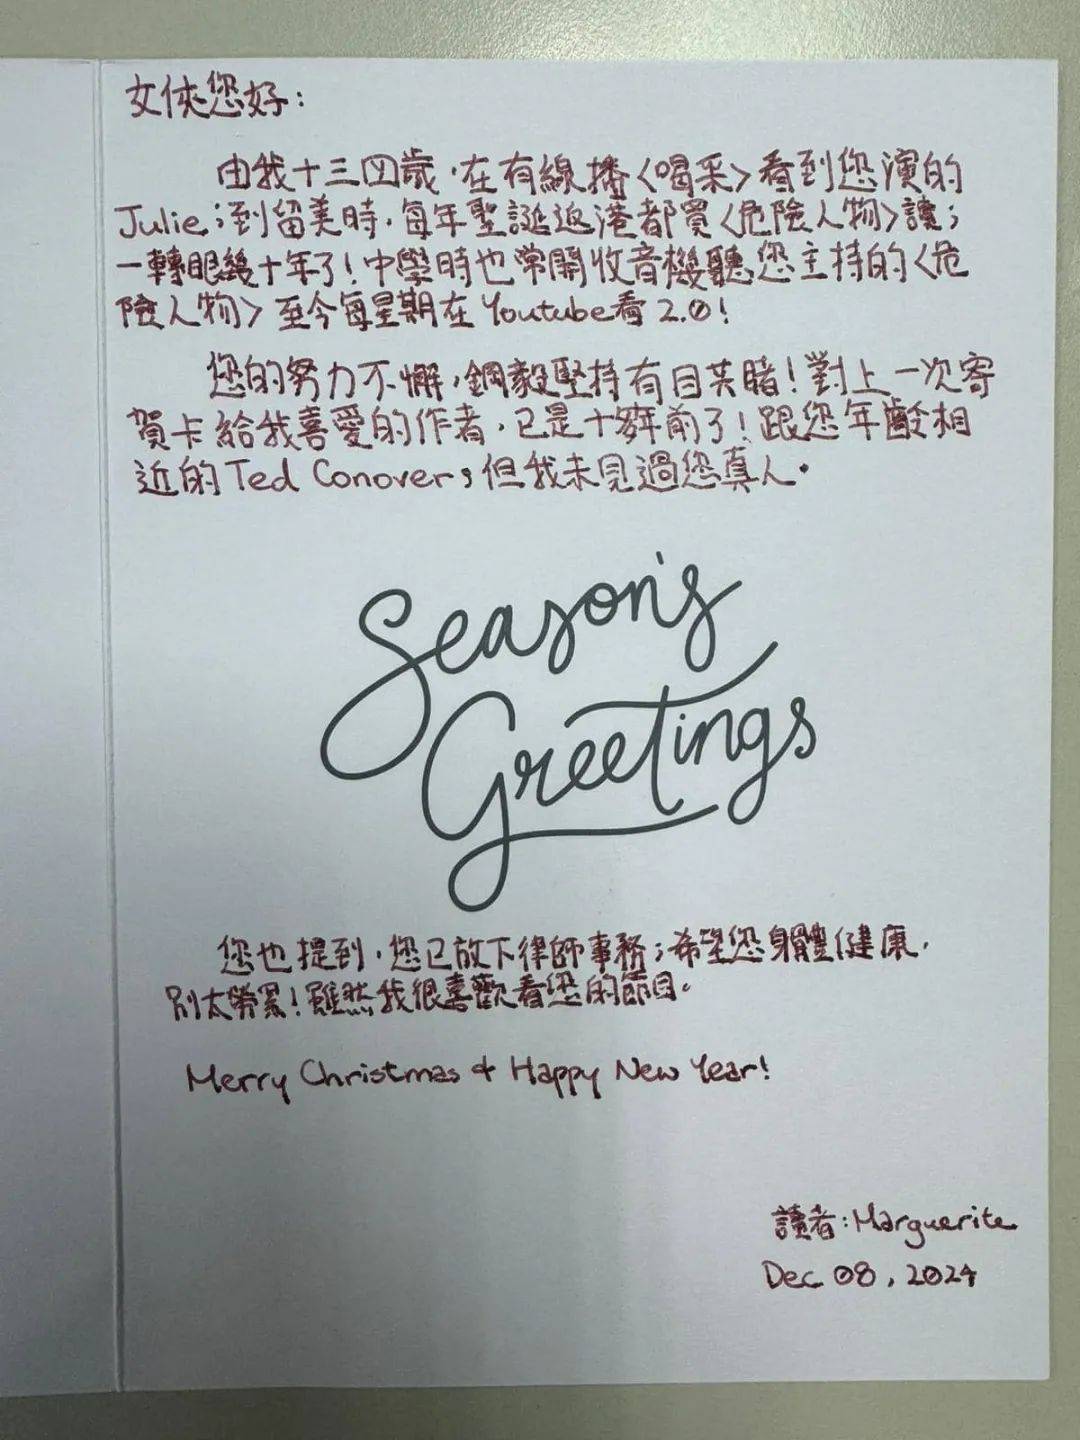 女俠您好：
由我十三四歲，在有線播〈喝采〉看到您演的
Julie；到留美時，每年聖誕返港都買〈危險人物〉讀；
一轉眼幾十年了！中學時也常開收音機聽您主持的〈危
險人物〉至今每星期在Youtube看2.0！
您的努力不懈，鋼毅堅持有目共睹！對上一次寄
賀卡給我喜愛的作者，已是十多年前了！跟您年齡相
近的Ted Conover；但我未見過您真人。
Season's
Greetings
您也提到，您已放下律師事務；希望您身體健康，
別太勞累！雖然我很喜歡看您的節目。
Merry Christmas & Happy New Year!
讀者：Marguerite
Dec 08, 2024